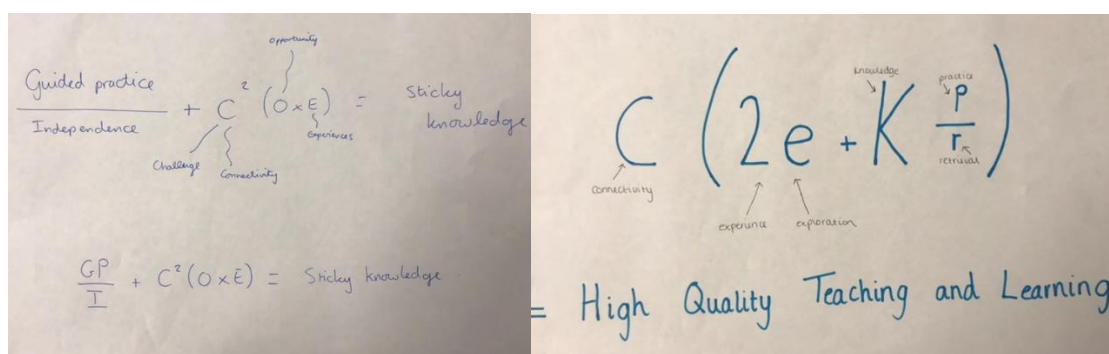 Opportunity
Guided practice
Independence
+ C² (O x E) = Sticky knowledge
Experiences
Challenge
Connectivity
GP
I
+ C² (O x E) = Sticky knowledge
knowledge
practice
C (2e + K p/r)
retrieval
connectivity
experience
exploration
= High Quality Teaching and Learning